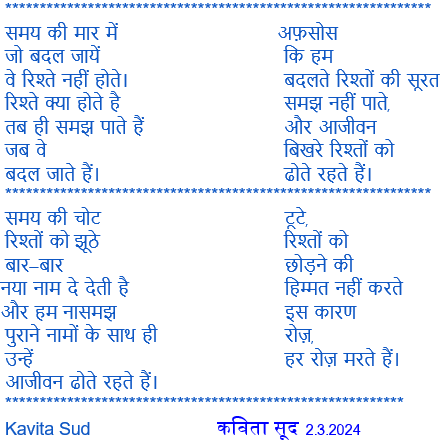 ******************************************************
समय की मार में
जो बदल जायें
वे रिश्ते नहीं होते।
रिश्ते क्या होते है
तब ही समझ पाते हैं
जब वे
बदल जाते हैं।
अफ़सोस
कि हम
बदलते रिश्तों की सूरत
समझ नहीं पाते,
और आजीवन
बिखरे रिश्तों को
ढोते रहते हैं।
******************************************************
समय की चोट
रिश्तों को झूठे
बार–बार
नया नाम दे देती है
और हम नासमझ
पुराने नामों के साथ ही
उन्हें
आजीवन ढोते रहते हैं।
टूटे,
रिश्तों को
छोड़ने की
हिम्मत नहीं करते
इस कारण
रोज़,
हर रोज़ मरते हैं।
******************************************************
Kavita Sud कविता सूद 2.3.2024